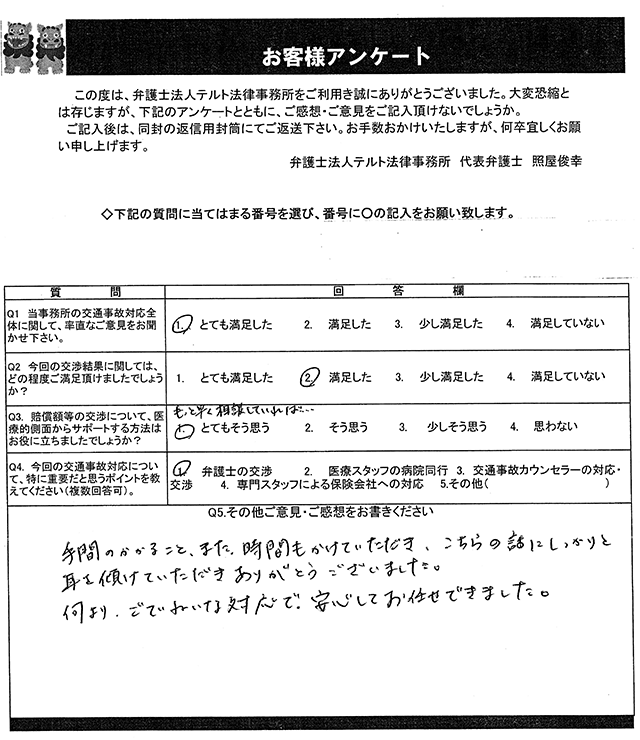 お客様アンケート
この度は、弁護士法人テルト法律事務所をご利用き誠にありがとうございました。大変恐縮と
は存じますが、下記のアンケートとともに、ご感想・ご意見をご記入頂けないでしょうか。
ご記入後は、同封の返信用封筒にてご返送下さい。お手数おかけいたしますが、何卒宜しくお願
い申し上げます。
弁護士法人テルト法律事務所 代表弁護士 照屋俊幸
◇下記の質問に当てはまる番号を選び、番号に〇の記入をお願い致します。
質 問 回 答 欄
Q1 当事務所の交通事故対応全
体に関して、率直なご意見をお聞
かせ下さい。
1. とても満足した 2. 満足した 3. 少し満足した 4. 満足していない
Q2 今回の交渉結果に関しては、
どの程度ご満足頂けましたでしょう
か?
1. とても満足した 2. 満足した 3. 少し満足した 4. 満足していない
Q3. 賠償額等の交渉について、医
療的側面からサポートする方法は
お役に立ちましたでしょうか?
もっと早く相談していれば…
1. とてもそう思う 2. そう思う 3. 少しそう思う 4. 思わない
Q4. 今回の交通事故対応につい
て、特に重要だと思うポイントを教
えてください(複数回答可)。
1. 弁護士の交渉 2. 医療スタッフの病院同行 3. 交通事故カウンセラーの対応・
交渉 4. 専門スタッフによる保険会社への対応 5.その他( )
Q5.その他ご意見・ご感想をお書きください
手間のかかること、また、時間もかけていただき、こちらの話にしっかりと
耳を傾けていただきありがとうございました。
何より、ごていねいな対応で、安心してお任せできました。